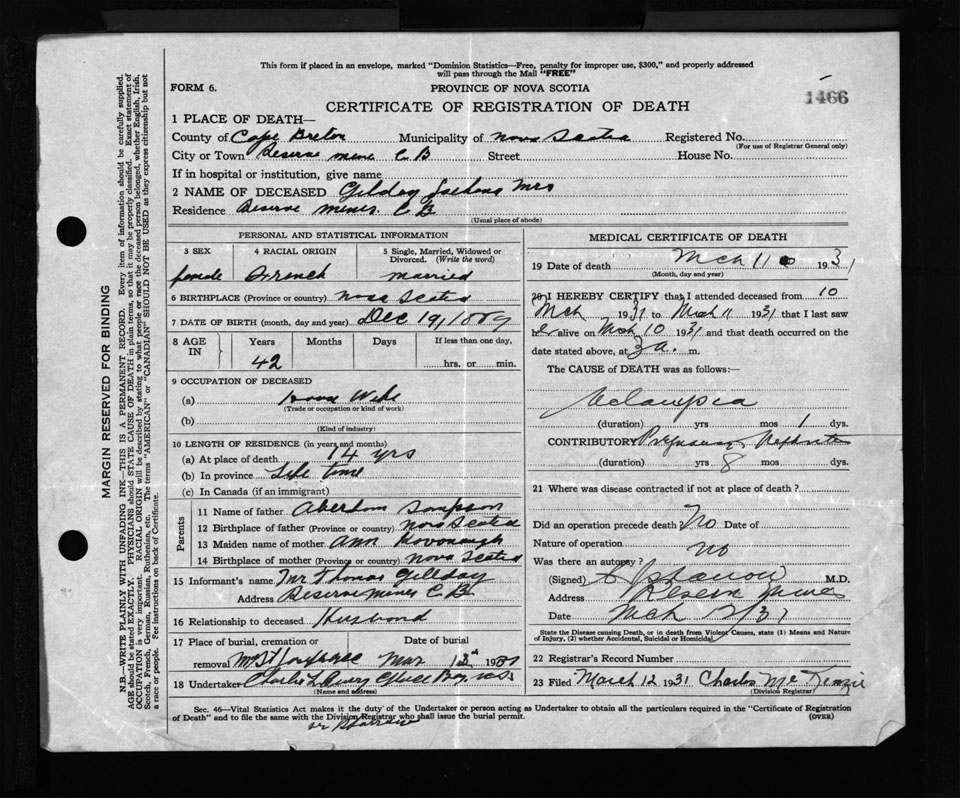 This form if placed in an envelope, marked "Dominion Statistics—Free, penalty for improper use, $300," and properly addressed
will pass through the Mail "FREE"
FORM 6. PROVINCE OF NOVA SCOTIA
1466
CERTIFICATE OF REGISTRATION OF DEATH
1 PLACE OF DEATH—
County of Cape Breton Municipality of Nova Scotia Registered No.
(For use of Registrar General only)
City or Town Reserve mine C B Street House No.
If in hospital or institution, give name
2 NAME OF DECEASED Gilday Mrs
Residence Reserve mines. C B
(Usual place of abode)
PERSONAL AND STATISTICAL INFORMATION
3 SEX 4 RACIAL ORIGIN 5 Single, Married, Widowed or Divorced. (Write the word)
female French married
6 BIRTHPLACE (Province or country) Nova Scotia
7 DATE OF BIRTH (month, day and year) Dec 19, 1889
8 AGE IN Years Months Days If less than one day,
42 hrs. or min.
9 OCCUPATION OF DECEASED
(a) House Wife
(Trade or occupation or kind of work)
(b)
(Kind of industry)
10 LENGTH OF RESIDENCE (in years and months)
(a) At place of death 14 yrs
(b) In province Life time
(c) In Canada (if an immigrant)
Parents
11 Name of father Sampson
12 Birthplace of father (Province or country) Nova Scotia
13 Maiden name of mother Ann Kovonaugh
14 Birthplace of mother (Province or country) Nova Scotia
15 Informant's name Mr Thomas Gillday
Address Reserve mines C.B.
16 Relationship to deceased Husband
17 Place of burial, cremation or removal Date of burial
Mar 13th 1931
18 Undertaker Charlie Glace Bay N.S.
(Name and address)
MEDICAL CERTIFICATE OF DEATH
19 Date of death Mch 11 1931
(Month, day and year)
20 I HEREBY CERTIFY that I attended deceased from 10
Mch 1931 to Mch 11 1931 that I last saw
her alive on Mch 10 1931 and that death occurred on the
date stated above, at 3 a. m.
The CAUSE of DEATH was as follows:—
Eclampsia
(duration) yrs mos 1 dys.
CONTRIBUTORY Pregnancy, Nephritis
(duration) yrs 8 mos dys.
21 Where was disease contracted if not at place of death?
Did an operation precede death? No Date of
Nature of operation
Was there an autopsy? no
(Signed) M.D.
Address Reserve Mines
Date Mch 12/31
State the Disease causing Death, or in death from Violent Causes, state (1) Means and Nature
of Injury, (2) whether Accidental, Suicidal or Homicidal.
22 Registrar's Record Number
23 Filed March 12 1931 Charles McKenzie
(Division Registrar)
Sec. 46—Vital Statistics Act makes it the duty of the Undertaker or person acting as Undertaker to obtain all the particulars required in the "Certificate of Registration
of Death" and to file the same with the Division Registrar who shall issue the burial permit. (OVER)
MARGIN RESERVED FOR BINDING
N.B.—WRITE PLAINLY WITH UNFADING INK—THIS IS A PERMANENT RECORD. Every item of information should be carefully supplied.
AGE should be stated EXACTLY. PHYSICIANS should STATE CAUSE OF DEATH in plain terms, so that it may be properly classified. Exact statement of
OCCUPATION is very important. RACIAL ORIGIN will be described by stating to what people or race the deceased person belonged, whether English, Irish,
Scotch, French, German, Russian, Ruthenian, etc. The terms "AMERICAN" or "CANADIAN" SHOULD NOT BE USED as they express citizenship but not
a race or people. See instructions on back of Certificate.